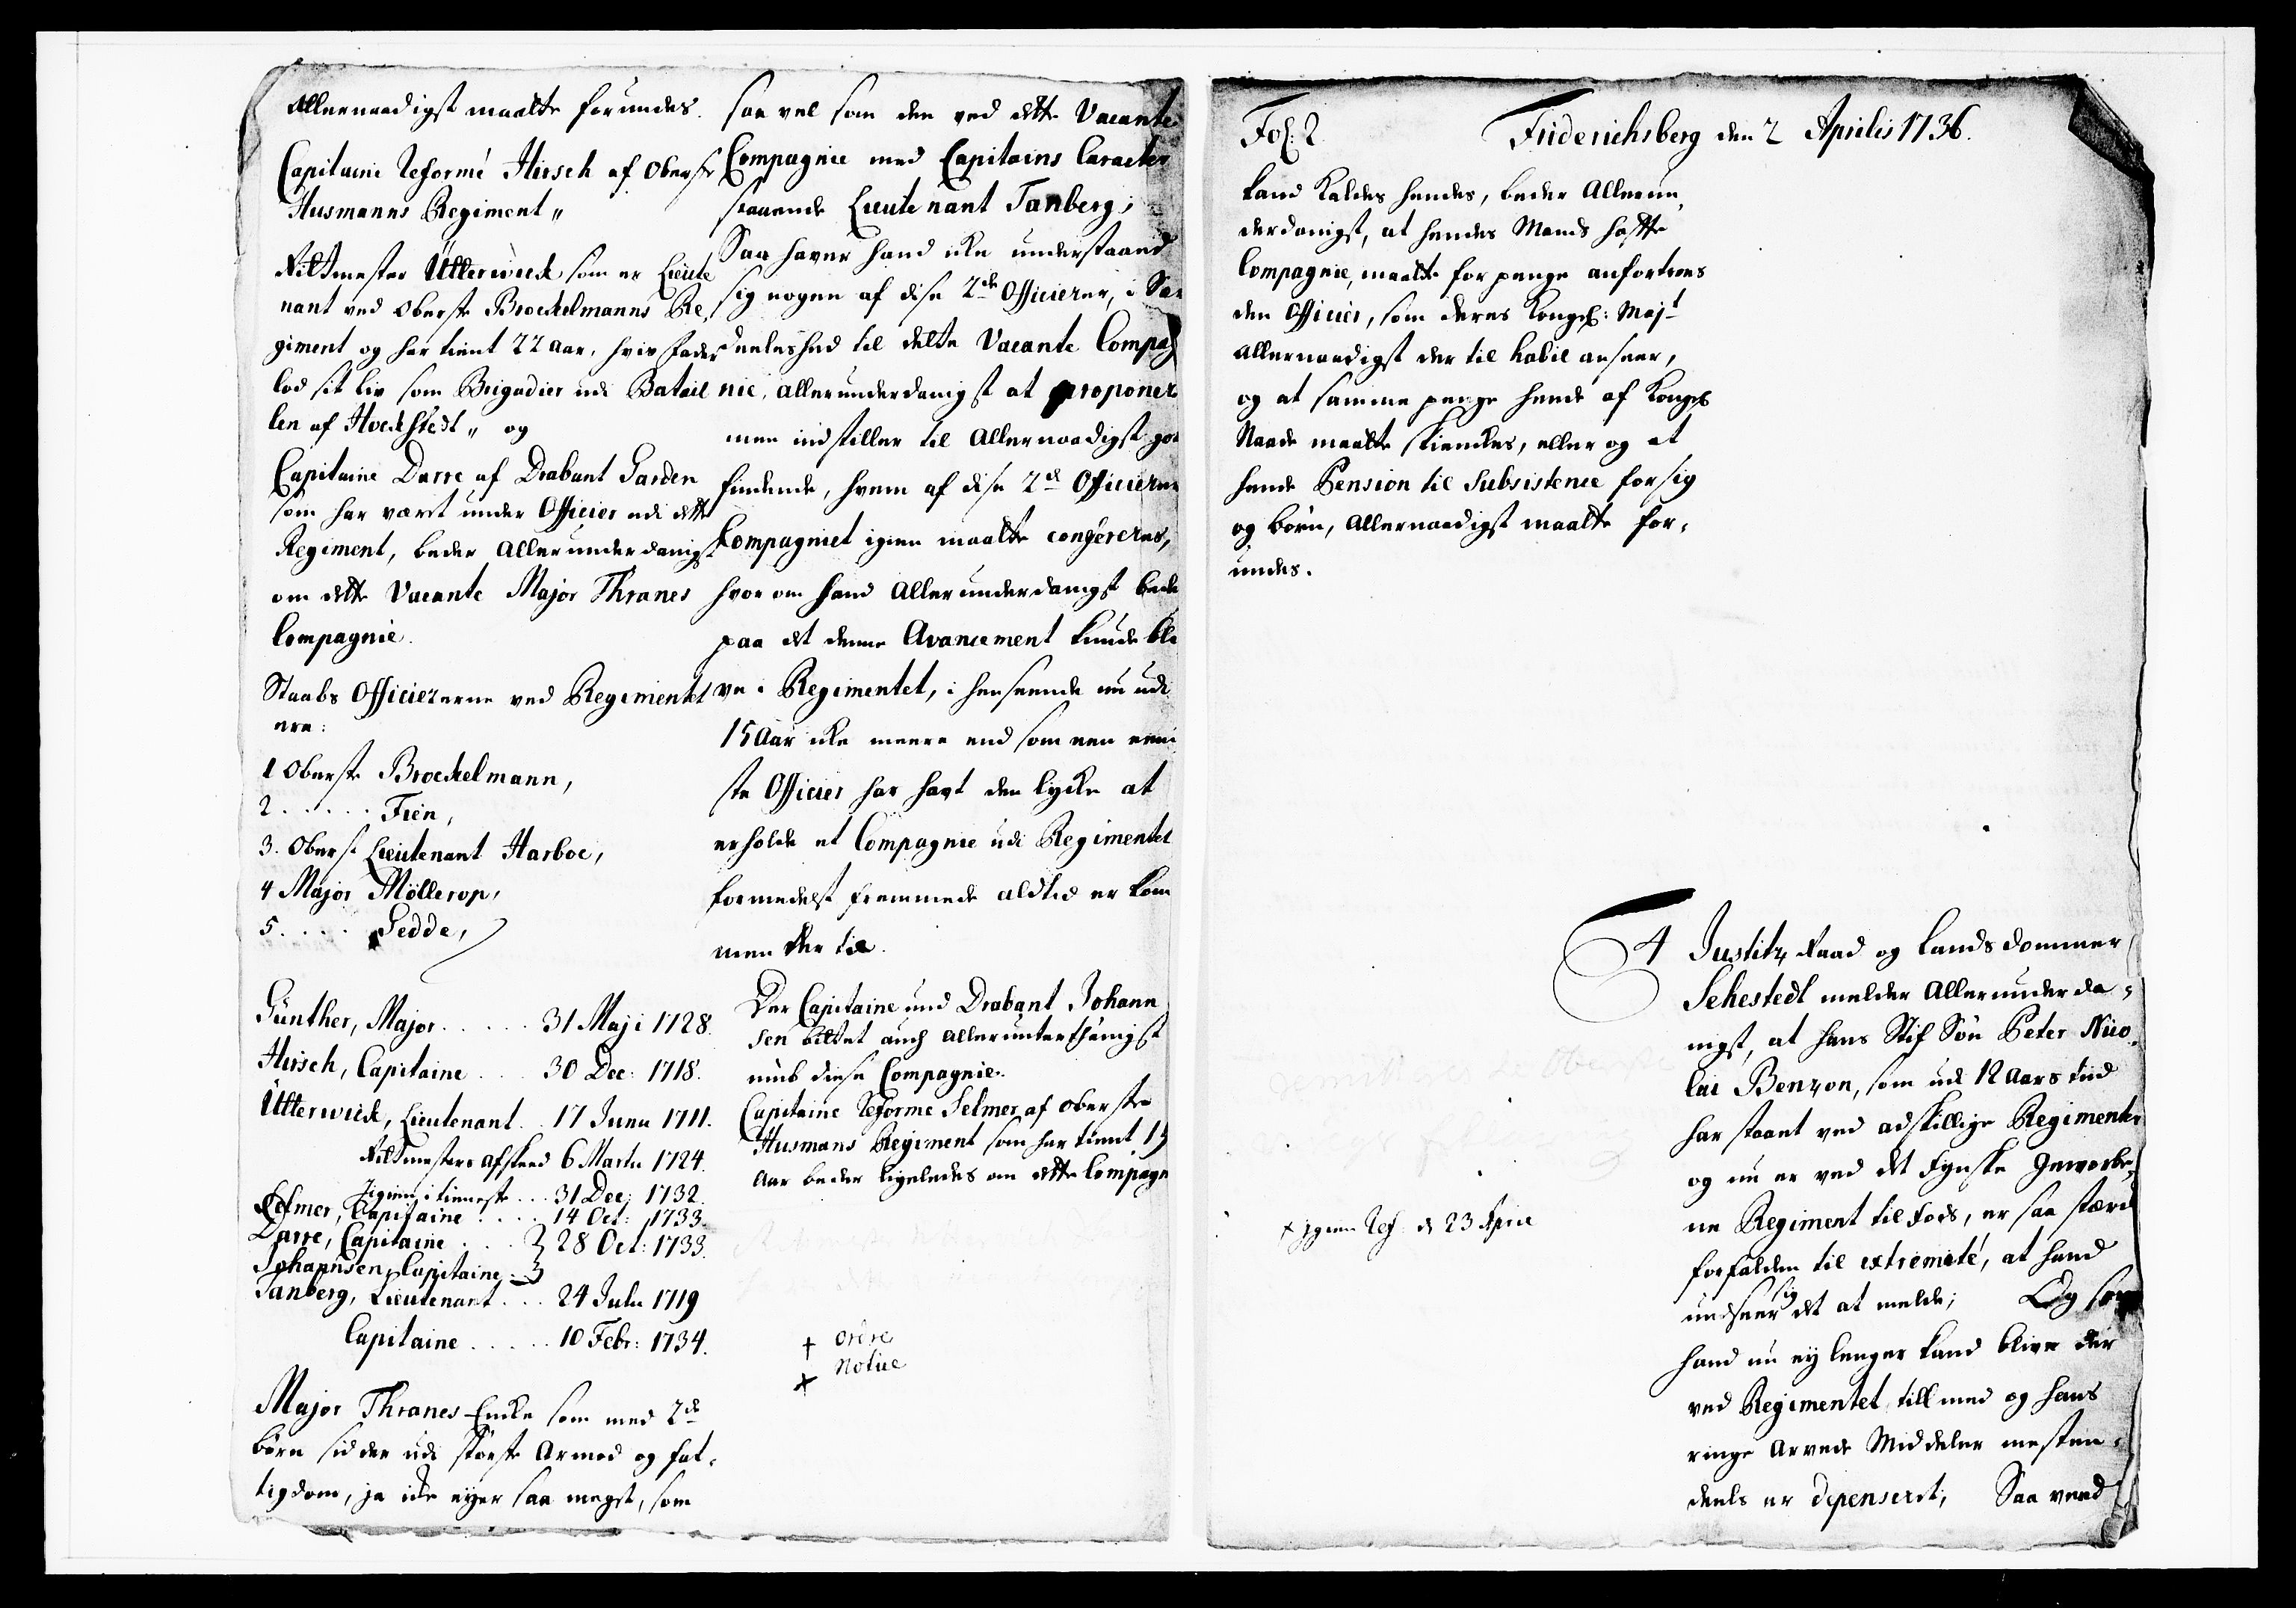 Allernaadigst maatte forundes.
Capitaine Reformé Hirsch af Oberst
Husmanns Regiment„
Ritmester Ütterwick som er Lieute
nant ved Oberste Brockelmanns Re,
giment og har tient 22 aar, hvis fader
lod sit liv som Brigadier udi Batail
len af Hochstedt„ og
Capitaine Darre af Drabant Garden
som har vært under Officier udi dette
Regiment, beder Allerunderdanigst
om dette Vacante Major Thranes
Compagnie.
Staabs Officiererne ved Regimentet
ere:
1 Oberste Brockelmann,
2 . . . . . Frên,
3. Oberst Lieutenant Harboe,
4 Major Möllerop,
5 . . . . Gedde,
Günther, Major . . . . . 31 Maji 1728.
Hirsch, Capitaine . . . 30 Dec: 1718.
Ütterwick, Lieutenant . . 17 Junii 1711.
Ritmesters afskeed 6 Martii 1724.
igien i tieneste . . . 31 Dec: 1732.
Selmer, Capitaine . . . . 14 Oct: 1733.
Darre, Capitaine . . . } 28 Oct: 1733.
Johannsen, Capitaine . }
Tanberg, Lieutenant . . . 24 Julii 1719
Capitaine . . . . . 10 Febr: 1734.
Major Thranes Encke som med 2de
börn sidder udi störste Armod og fat,
tigdom, ja icke eyer saa megst, som
saa vel som den ved dette Vacante
Compagnie med Capitains Caracter
staaende Lieutenant Tanberg;
Saa haver hand icke understaaed
sig nogen af dise 2de Officierer, i Sær
deeleshed til dette Vacante Compag
nie, allerunderdanigst at proponer
men indstiller til Allernaadigst got
findende, hvem af dise 2de Officierer
Compagniet igien maatte confereres,
hvor om hand Allerunderdanigst bede
paa det denne Avancement kunde bli
ve i Regimentet, i henseende nu udi
15 Aar icke meere end som een eeni
ste Officier har havt den lycke at
erholde et Compagnie udi Regimentet
formedelst fremmede altid er kom
men der til.
Der Capitaine und Drabant Johann
sen bittet auch allerunterthänigst
umb diese Compagnie.
Capitaine Reformé Selmer af Oberste
Husmans Regiment som har tient 19
Aar beder ligeledes om dette Compagn
+ ordre
+ Notice
Fol: 2. Friderichsberg den 2 Aprilis 1736.
kand kaldes hendes, beder Allerun,
derdanigst, at hendes Mands hafte
Compagnie, maatte for penge anfortroes
den Officier, som deres Kongel: Majt
allernaadigst der til habil anseer,
og at samme penge hende af Kongel
Naade maatte skienckes, eller og at
hende Pension til Subsistence for sig
og börn, Allernaadigst maatte for,
undes.
+ igien Ref. d 23 April
4 Justitz Raad og Landsdommer
Sehestedt melder Allerunderda,
nigst, at hans Stif Sön Peter Nico,
lai Benzon, som udi 12 Aars tiid
har staaet ved adskillige Regimenter
og nu er ved det Fynske Geworbe,
ne Regiment til Fods, er saa stærck
forfalden til extremité, at hand
undseer sig det at melde; Og som
hand nu ey lenger kand blive der
ved Regimentet till med og hans
ringe Arvede Middeler mesten,
deels er depenseret; Saa veed